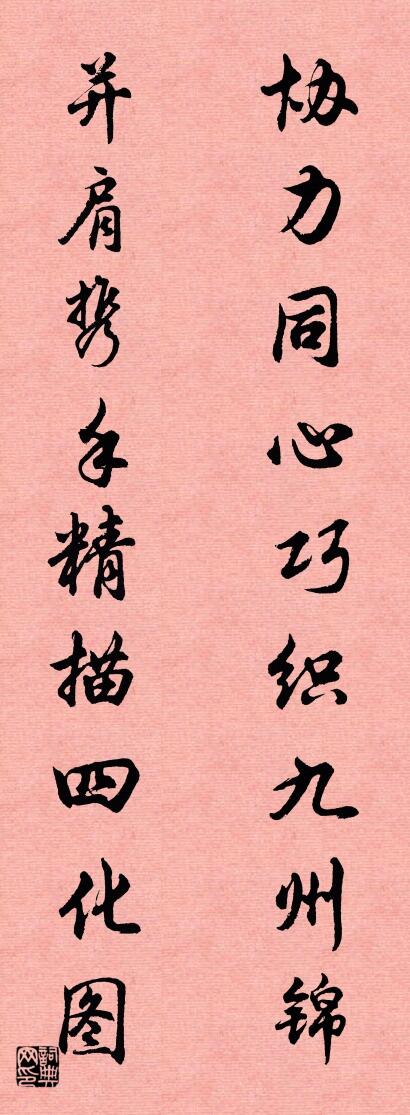 协力同心巧织九州锦
并肩携手精描四化图
词典网印